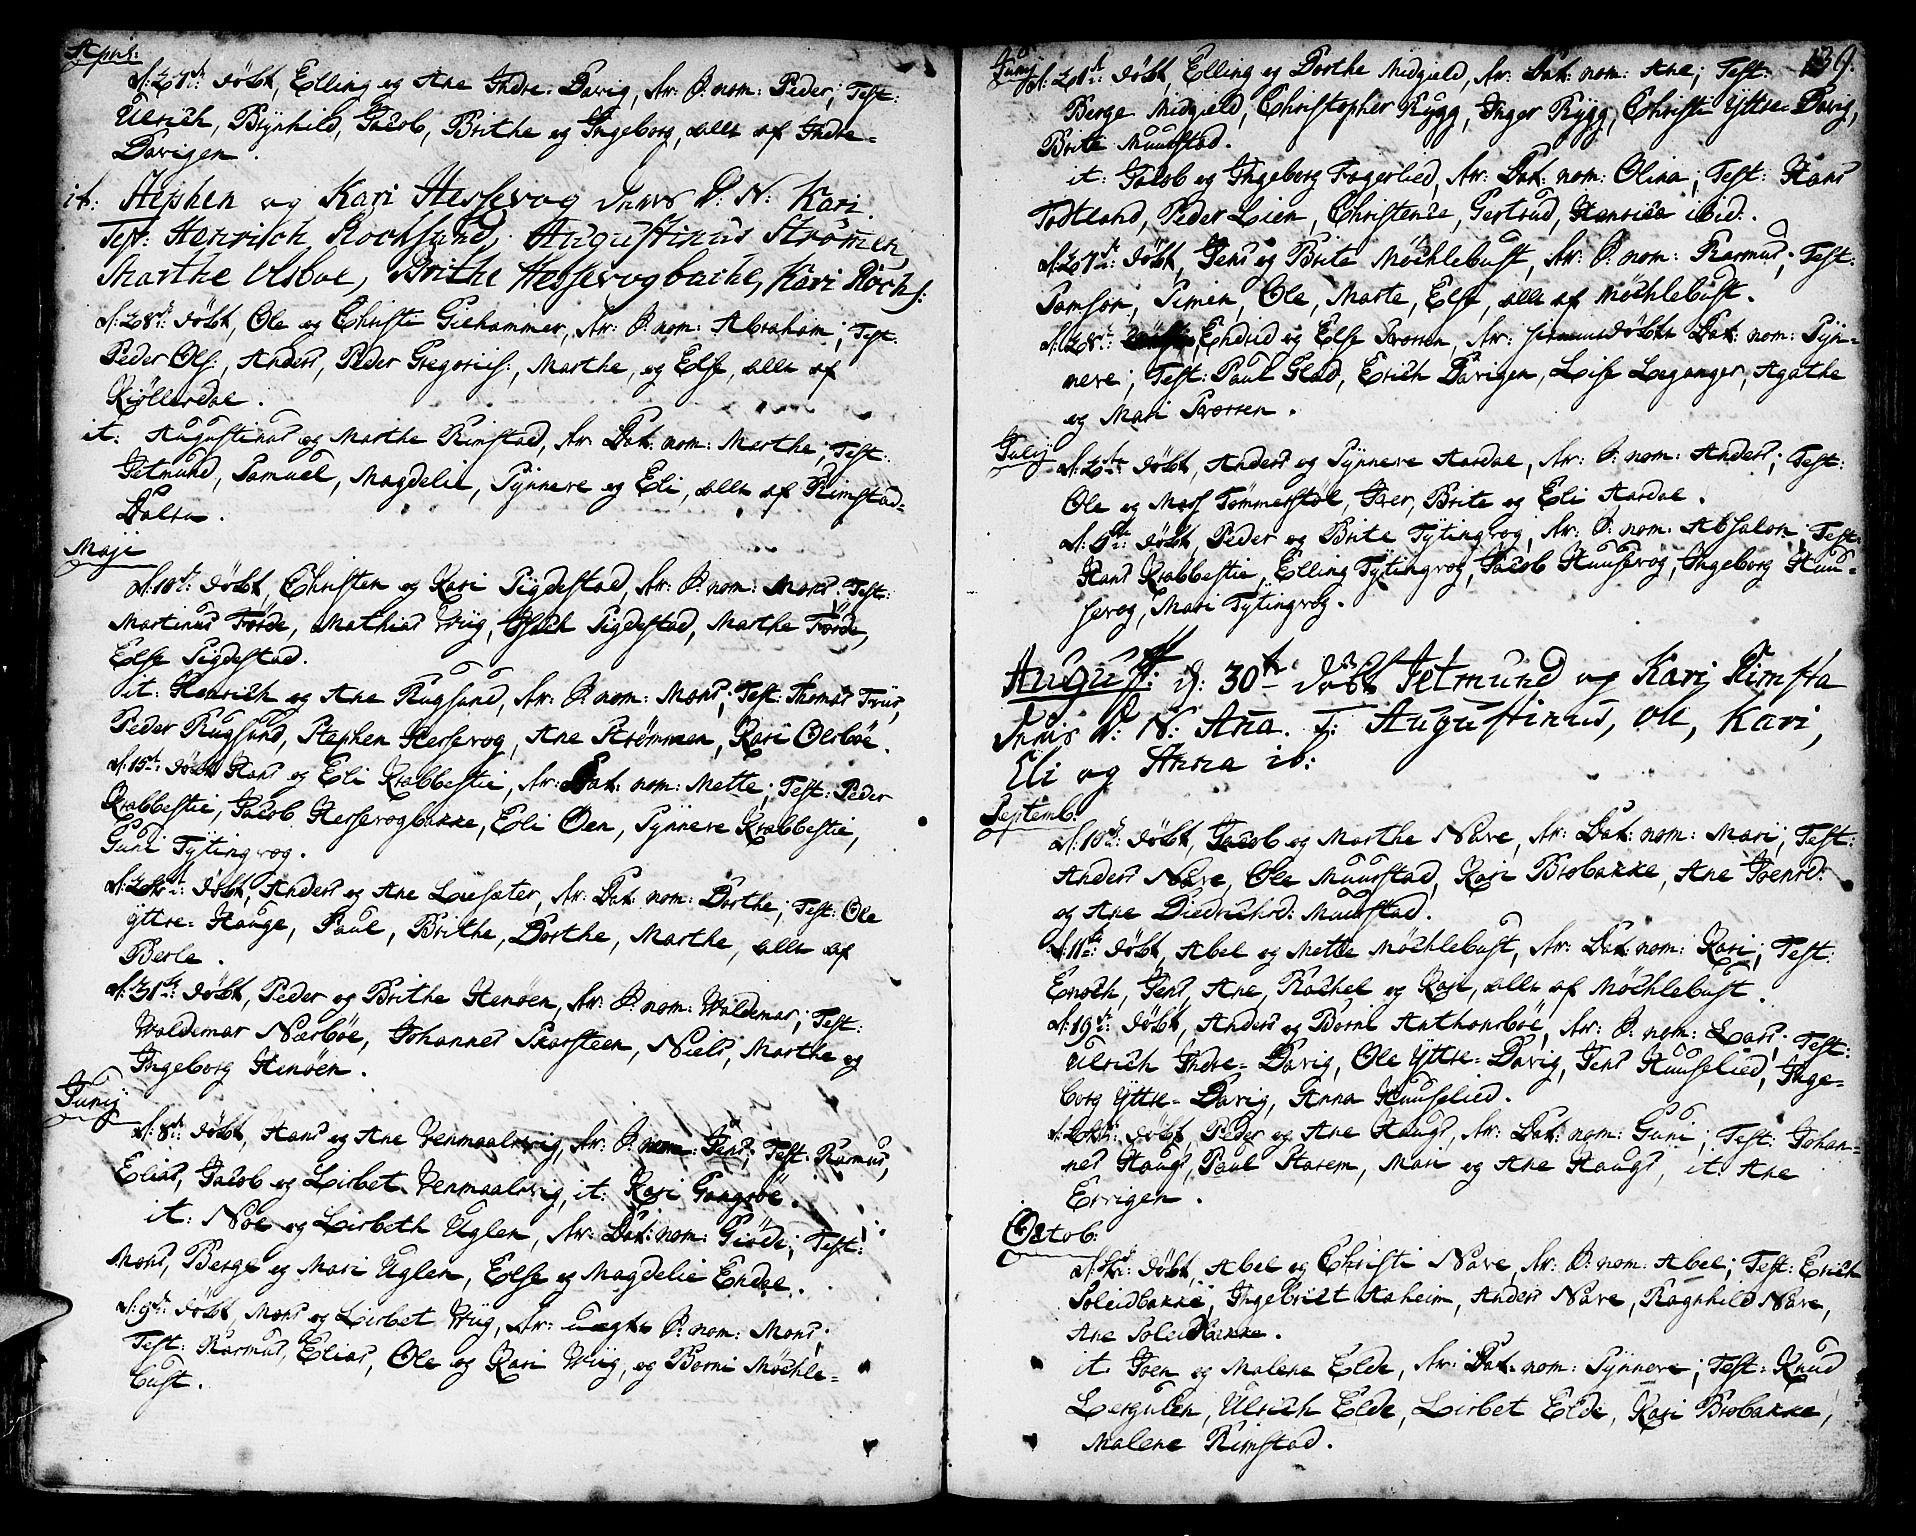 April:
d: 27de døbt, Elling og Ane Indre-Davig, dr: S: nom: Peder; Test:
Ulrich, Brynhild, Jacob, Brithe og Ingeborg, alle af Indre-
Davigen.
it: Stephen og Kari Hessevog deres S: N: Kari
Test: Henrich Rochsund, Augustinus Strømen,
Marthe Olsboe, Brithe Hessevogbache, Kari Rochs:
d: 28de døbt, Ole og Christi Giehammer, dr: S: nom: Abraham; Test:
Peder Ols:, Anders, Peder Gregoriis:, Marthe, og Else, alle af
Kiøllerdal.
it: Augustinus og Marthe Rimstad, dr: Dat: nom: Marthe; Test:
Jetmund, Samuel, Magdelie, Synneve og Eli, alle af Rimstad-
Dalen.
Maji
d: 10de døbt, Christen og Kari Sigdestad, dr: S: nom: Mons; Test:
Martinus Førde, Mathias Wiig, Isach Sigdestad, Marthe Førde,
Else Sigdestad.
it: Henrich og Ane Rugsund, dr: S: nom: Mons; Test: Thomas Friis,
Peder Rugsund, Stephen Hessevog, Ane Strømmen, Kari Olsbøe.
d: 15de døbt Hans og Eli Krabbestie, dr: Dat: nom: Mette; Test: Peder
Krabbestie, Jacob Hessevogbakke, Eli Øen, Synneve Krabbestie,
Guni Tytingvog.
døbt, Anders og Ane Lusæter, dr: Dat: nom: Dorthe; Test: Ole
yttre-Hauge, Paul, Brithe, Dorthe, Marthe, alle af
Berle.
d: 31te døbt, Peder og Brithe Henøen, dr: S: nom: Waldemar; Test:
Waldemar Nærbøe, Johannes Skarsteen, Niels, Marthe og
Ingeborg Henøen.
Junij
d: 8de døbt, Hans og Ane Venmaalsvig, dr: S: nom: Jens; Test: Rasmus,
Elias, Jacob og Lisbet Venmaalsvig, it: Kari Gangsøe.
it: Noe og Lisbeth Uglen, dr: Dat: nom: Giøde; Test:
Mons, Berge og Mari Uglen, Else og Magdelie Endal.
d: 9de døbt, Mons og Lisbet Wiig, dr: uægte S: nom: Mons;
Test: Rasmus, Elias, Ole og Kari Wiig, og Borni Møchle-
bust.
139.
Junij d: 21de døbt, Elling og Dorthe Midgield, dr: Dat: nom: Ane; Test:
Berge Midgield, Christopher Rygg, Inger Rygg, Christi Yttre-Davig,
Brite Muurstad.
it: Jacob og Ingeborg Fagerlied, dr: Dat: nom: Olina; Test: Hans
Totland, Peder Lien, Christense, Gertrud, Henrica ibid:.
d: 27de døbt, Jens og Brite Møchlebust, dr: S: nom: Rasmus; Test:
Samson, Simen, Ole, Marte, Else, alle af Møchlebust.
d: 28de Endrid og Else dr: Dat: nom: Syn-
neve; Test: Paul Glad, Erich Davigen, Lise Leganger, Agathe
og Mari
Julij
døbt, Anders og Synneve Aardal, dr: S: nom: Anders; Test:
Ole og Mari Tømmerstøl, Iver, Brite og Eli Aardal.
d: 5te døbt, Peder og Brite Tytingvog, dr: S: nom: Absalon; Test:
Hans Krabbestie, Elling Tytingvog, Jacob Huusevog, Ingeborg Huu-
sevog, Mari Tytingvog.
August: d: 30te døbt Jetmund og Kari Rimsta
deres D: N: Ana. T: Augustinus, Ole, Kari,
Eli og Anna ib:
Septemb:
d: 10de døbt, Jacob og Marthe Nave, dr: Dat: nom: Mari; Test:
Anders Nave, Ole Muurstad, Kari Brobakke, Ane Joensd:
og Ane Diedrichsd: Muurstad.
d: 11te døbt, Abel og Mette Møchlebust, dr: Dat: nom: Kari; Test:
Enoch, Jens, Ane, Rachel og Kari, alle af Møchlebust.
d: 19de døbt, Anders og Borni Anthonsbøe, dr: S: nom: Lars; Test:
Ulrich Indre-Davig, Ole Yttre-Davig, Jens Huuselied, Inge-
borg Yttre-Davig, Anna Huuselied.
døbt, Peder og Ane Haugs, dr: Dat: nom: Guni; Test: Johan-
nes Haugs, Paul Starem, Mari og Ane Haugs, it: Ane
Ervigen.
Octob:
døbt, Abel og Christi Nave, dr: S: nom: Abel; Test: Erich
Soleidbakke, Ingebricht Aaheim, Anders Nave, Ragnhild Nave,
Ane Soleidbakke.
it: Joen og Malene Elde, dr: Dat: nom: Synneve; Test: Knud
Lergulen, Ulrich Elde, Lisbet Elde, Kari Brobakke,
Malene Rimstad.